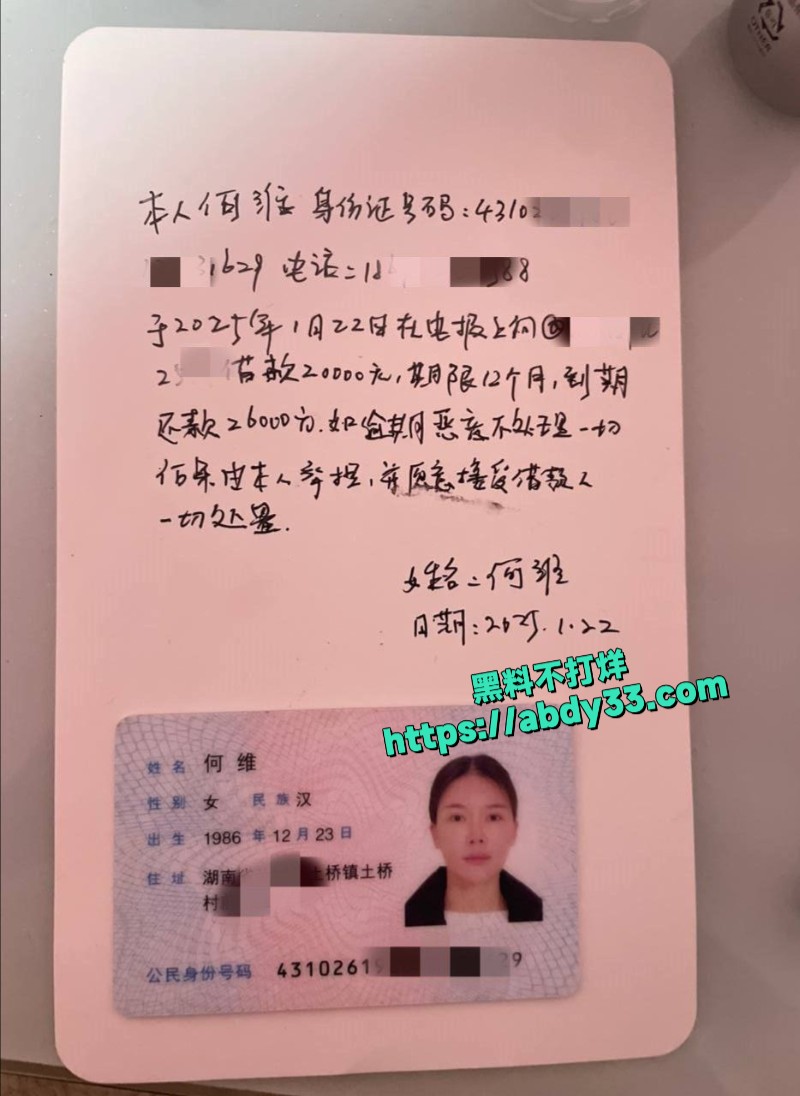 OTHER
本人何维 身份证号码:43102
31629 电话:18 68
于2025年1月22日在电报上向@
2 借款20000元,期限12个月,到期
还款26000元.如逾期恶意不处理一切
后果由本人承担,并愿意接受借款人
一切处置.
姓名:何维
日期:2025.1.22
黑料不打烊
https://abdy33.com
姓名 何维
性别 女 民族 汉
出生 1986 年 12 月 23 日
住址 湖南 土桥镇土桥
村
公民身份号码 43102619 9